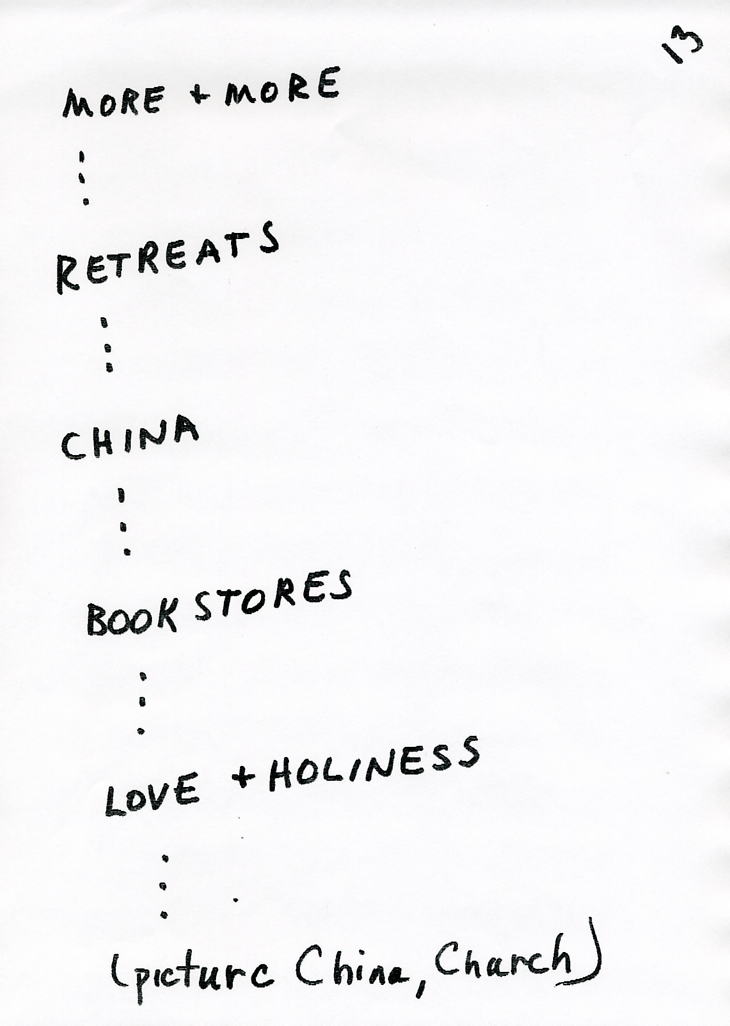 13
MORE + MORE
⋮
RETREATS
⋮
CHINA
⋮
BOOKSTORES
⋮
LOVE + HOLINESS
⋮
(picture China, Church)